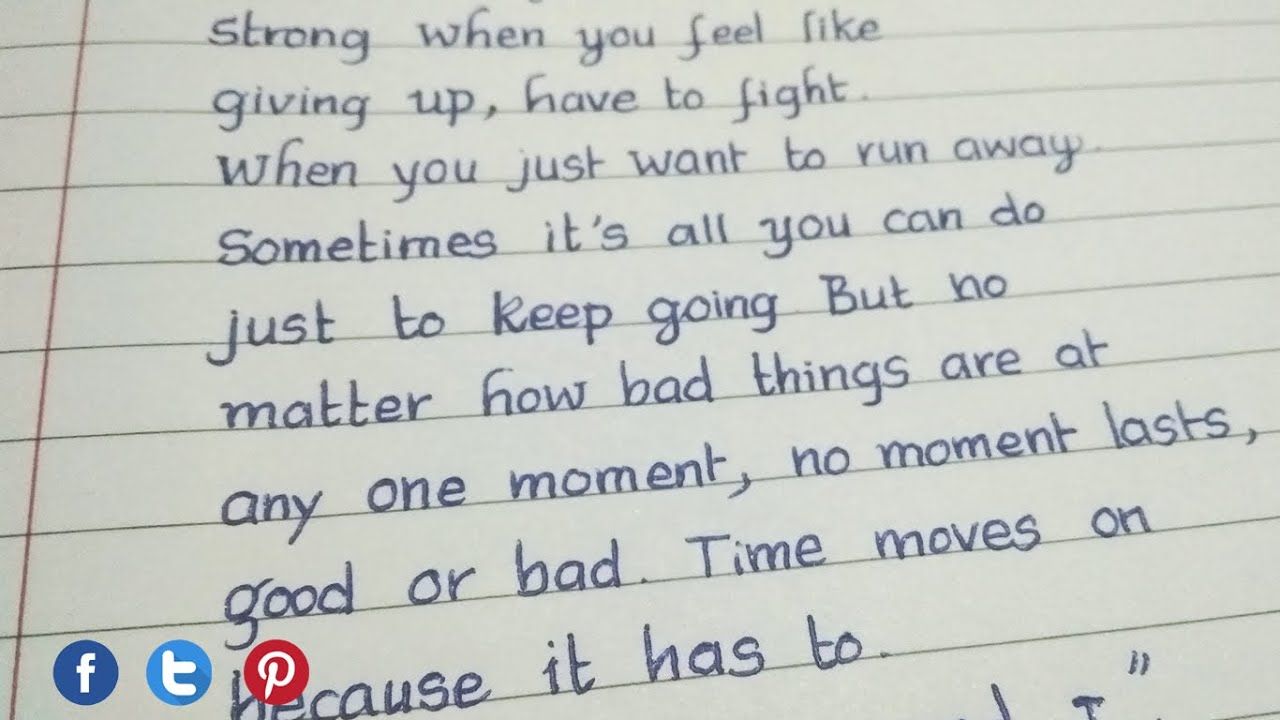 strong when you feel like
giving up, have to fight.
When you just want to run away.
Sometimes it's all you can do
just to keep going But no
matter how bad things are at
any one moment, no moment lasts,
good or bad. Time moves on
because it has to.